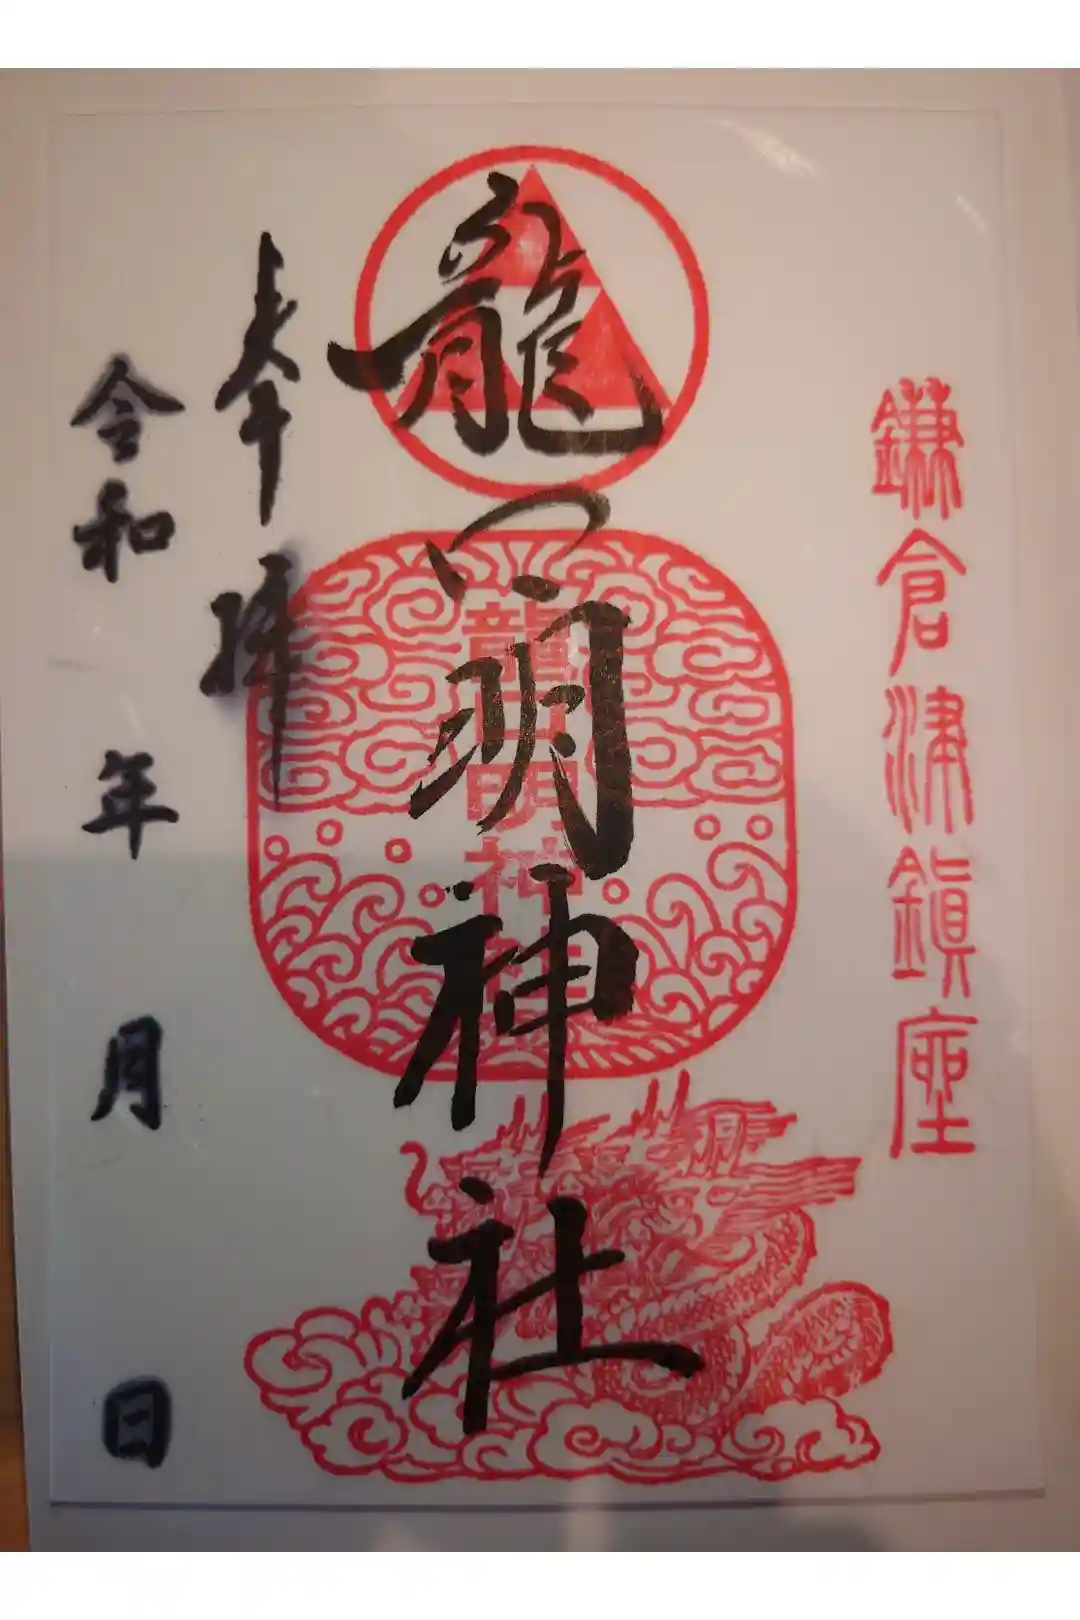 鎌倉津鎮座
龍口明神社
龍口明神社
奉拝
令和 年 月 日